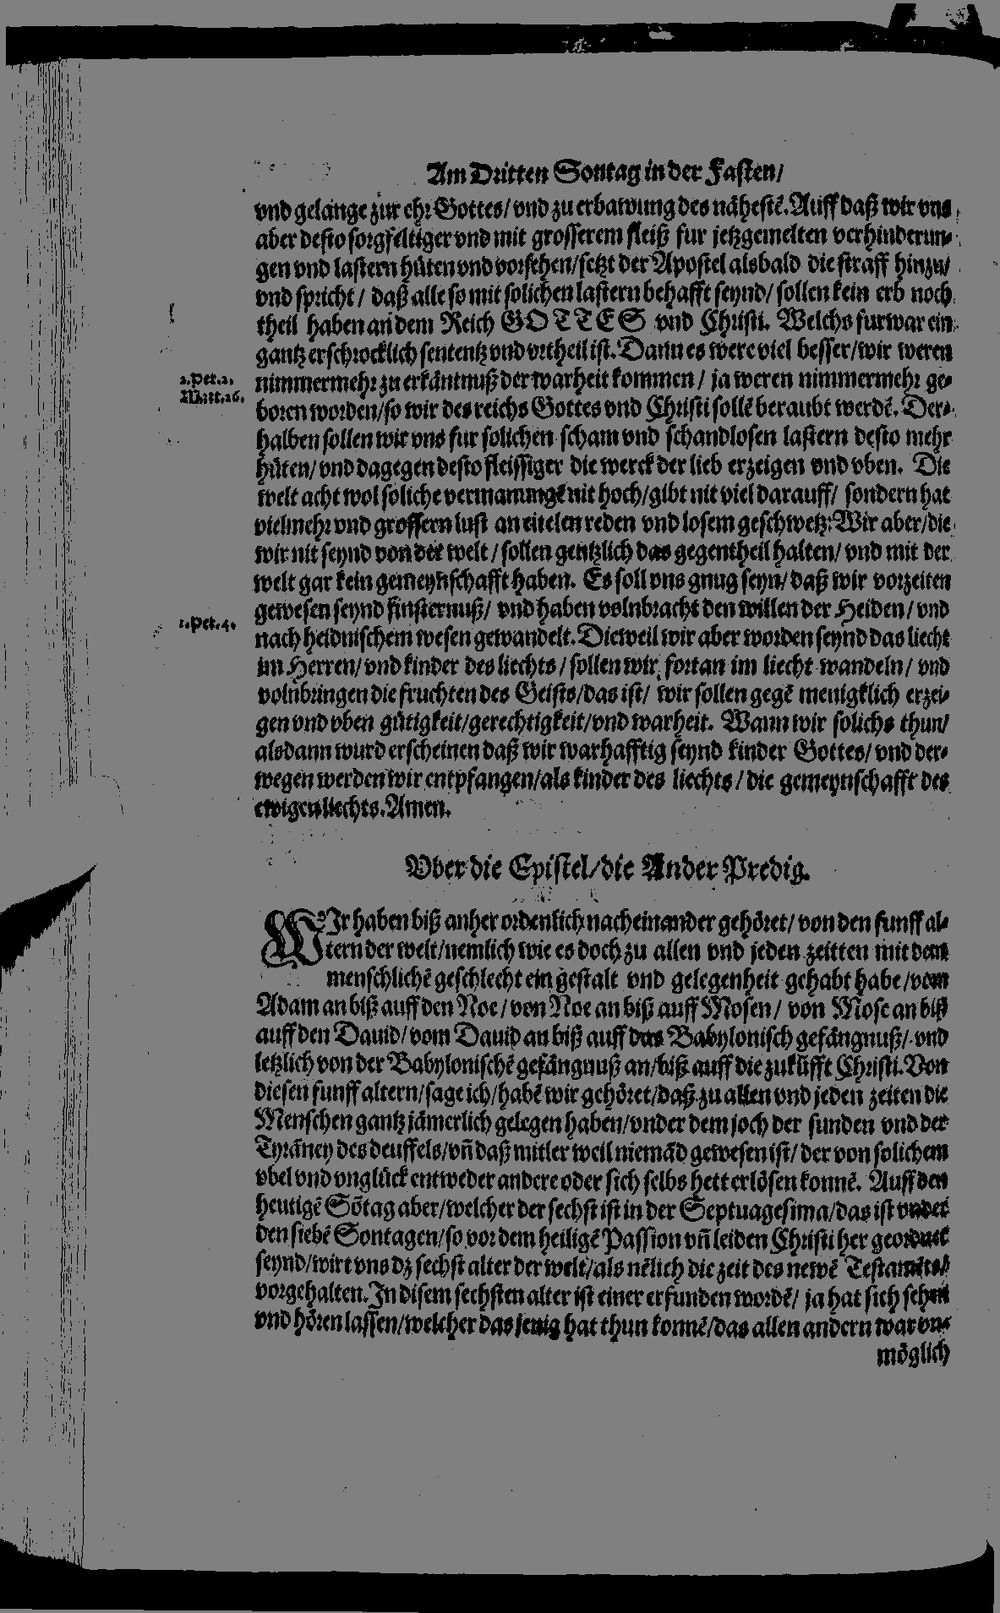 Am Dritten Sontag in der Fasten/
vnd gelange zur ehr Gottes/ vnd zu erbawung des nähestē. Auff daß wir vns
aber desto sorgfeltiger vnd mit grosserem fleiß fur jetzgemelten verhinderun-
gen vnd lastern hüten vnd vorsehen/ setzt der Apostel alsbald die straff hinzu/
vnd spricht/ daß alle so mit solichen lastern behafft seynd/ sollen kein erb noch
theil haben an dem Reich GOTTES vnd Christi. Welchs furwar ein
gantz erschrocklich sententz vnd vrtheil ist. Dann es were viel besser/ wir weren
2.Pet.2.
nimmermehr zu erkäntnuß der warheit kommen/ ja weren nimmermehr ge-
Matt.26.
boren worden/ so wir des reichs Gottes vnd Christi sollē beraubt werdē. Der-
halben sollen wir vns fur solichen scham vnd schandlosen lastern desto mehr
hüten/ vnd dagegen desto fleissiger die werck der lieb erzeigen vnd vben. Die
welt acht wol soliche vermanungē nit hoch/ gibt nit viel darauff/ sondern hat
vielmehr vnd grossern lust an eitelen reden vnd losem geschwetz: Wir aber/ die
wir nit seynd von der welt/ sollen gentzlich das gegentheil halten/ vnd mit der
welt gar kein gemeynschafft haben. Es soll vns gnug seyn/ daß wir vorzeiten
1.Pet.4.
gewesen seynd finsternuß/ vnd haben volnbracht den willen der Heiden/ vnd
nach heidnischem wesen gewandelt. Dieweil wir aber worden seynd das liecht
im Herren/ vnd kinder des liechts/ sollen wir fortan im liecht wandeln/ vnd
volnbringen die fruchten des Geists/ das ist/ wir sollen gegē menigklich erzei-
gen vnd vben gütigkeit/ gerechtigkeit/ vnd warheit. Wann wir solichs thun/
alsdann wurd erscheinen daß wir warhafftig seynd kinder Gottes/ vnd der-
wegen werden wir entpfangen/ als kinder des liechts/ die gemeynschafft des
ewigen liechts. Amen.
Vber die Epistel/ die Ander Predig.
WIr haben biß anher ordenlich nach einander gehöret/ von den funff al-
tern der welt/ nemlich wie es doch zu allen vnd jeden zeitten mit dem
menschlichē geschlecht ein gestalt vnd gelegenheit gehabt habe/ vom
Adam an biß auff den Noe/ von Noe an biß auff Mosen/ von Mose an biß
auff den Dauid/ vom Dauid an biß auff das Babylonisch gefängnuß/ vnd
letzlich von der Babylonischē gefängnuß an/ biß auff die zukūfft Christi. Von
diesen funff altern/ sage ich/ habē wir gehöret/ daß zu allen vnd jeden zeiten die
Menschen gantz jämerlich gelegen haben/ vnder dem joch der sunden vnd der
Tyräney des deuffels/ vn̄ daß mitler weil niemād gewesen ist/ der von solichem
vbel vnd vnglück entweder andere oder sich selbs hett erlösen konnē. Auff den
heutigē Sōtag aber/ welcher der sechst ist in der Septuagesima/ das ist vnder
den siebē Sontagen/ so vor dem heiligē Passion vn̄ leiden Christi her geordnet
seynd/ wirt vns dz sechst alter der welt/ als nēlich die zeit des newē Testamēts/
vorgehalten. In disem sechsten alter ist einer erfunden wordē/ ja hat sich sehen
vnd hören lassen/ welcher das jenig hat thun konnē/ das allen andern war vn-
möglich